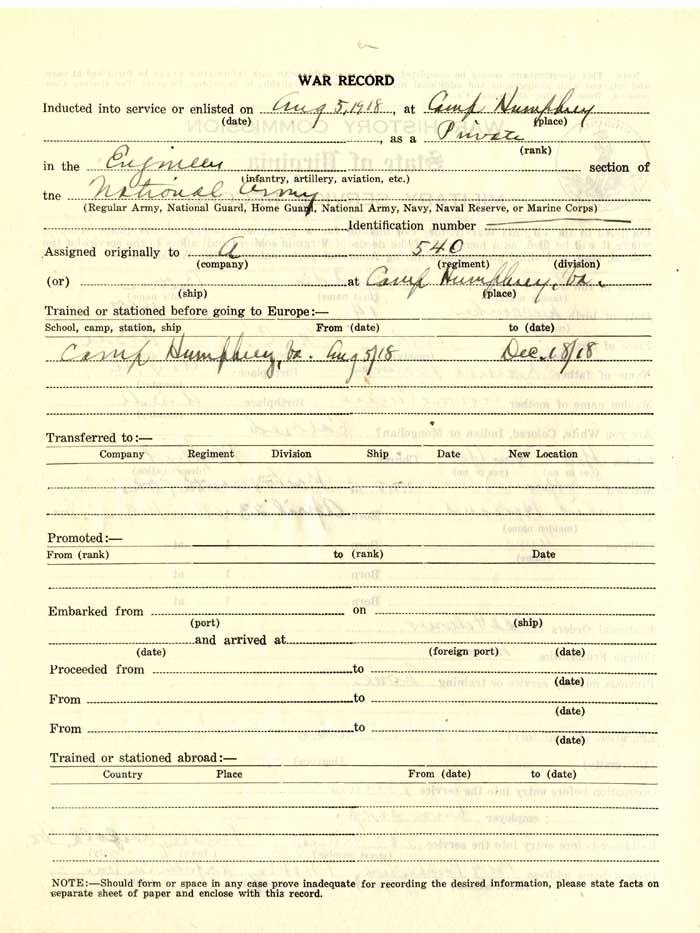 WAR RECORD
Inducted into service or enlisted on Aug 5, 1918, at Camp Humphrey
(date) (place)
, as a Private
(rank)
in the Engineer section of
(infantry, artillery, aviation, etc.)
tne National Army
(Regular Army, National Guard, Home Guard, National Army, Navy, Naval Reserve, or Marine Corps)
Identification number
Assigned originally to A 540
(company) (regiment) (division)
(or) at Camp Humphrey, Va.
(ship) (place)
Trained or stationed before going to Europe:—
School, camp, station, ship From (date) to (date)
Camp Humphrey, Va. Aug 5/18 Dec. 18/18
Transferred to:—
Company Regiment Division Ship Date New Location
Promoted:—
From (rank) to (rank) Date
Embarked from on
(port) (ship)
and arrived at
(date) (foreign port) (date)
Proceeded from to
(date)
From to
(date)
From to
(date)
Trained or stationed abroad:—
Country Place From (date) to (date)
NOTE:—Should form or space in any case prove inadequate for recording the desired information, please state facts on
separate sheet of paper and enclose with this record.